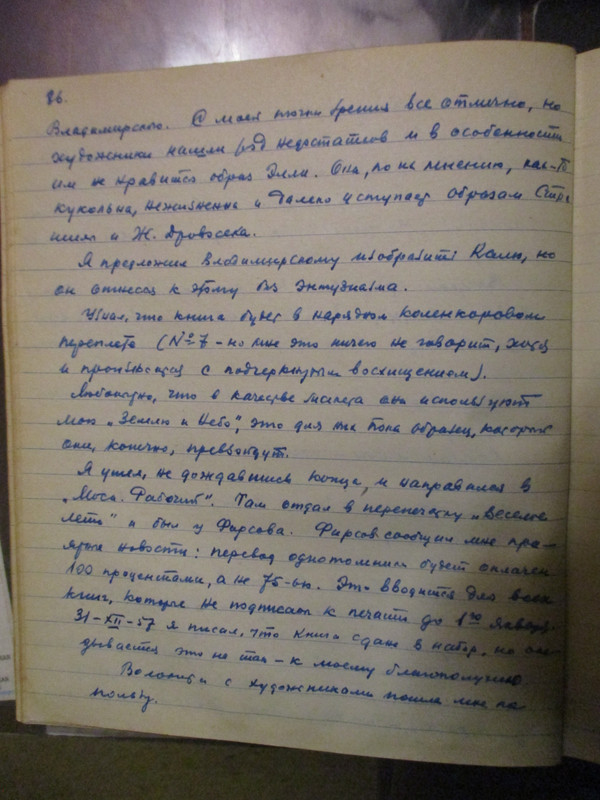 86.
Владимирского. С моей точки зрения все отлично, но
художники нашли ряд недостатков и в особенности
им не нравится образ Элли. Она, по их мнению, как-то
кукольна, нежизненна и далеко уступает образам Стра-
шилы и Ж. Дровосека.
Я предложил Владимирскому изобразить Калям, но
он отнесся к этому без энтузиазма.
Узнал, что книга будет в нарядном коленкоровом
переплете (№ 7 – но мне это ничего не говорит, хотя
и произносится с подчеркнутым восхищением).
Любопытно, что в качестве макета они используют
мою „Землю и небо", это для них пока образец, который
они, конечно, превзойдут.
Я ушел, не дождавшись конца, и направился в
„Моск. Рабочий". Там отдал в перепечатку „Веселое
лето" и был у Фирсова. Фирсов сообщил мне при-
ятные новости: перевод однотомника будет оплачен
100 процентами, а не 75-ью. Это вводится для всех
книг, которые не подписаны к печати до 1го января.
31-XII-57 я писал, что книга сдана в набор, но ока-
зывается это не так – к моему благополучию
Волокита с художниками пошла мне на
пользу.